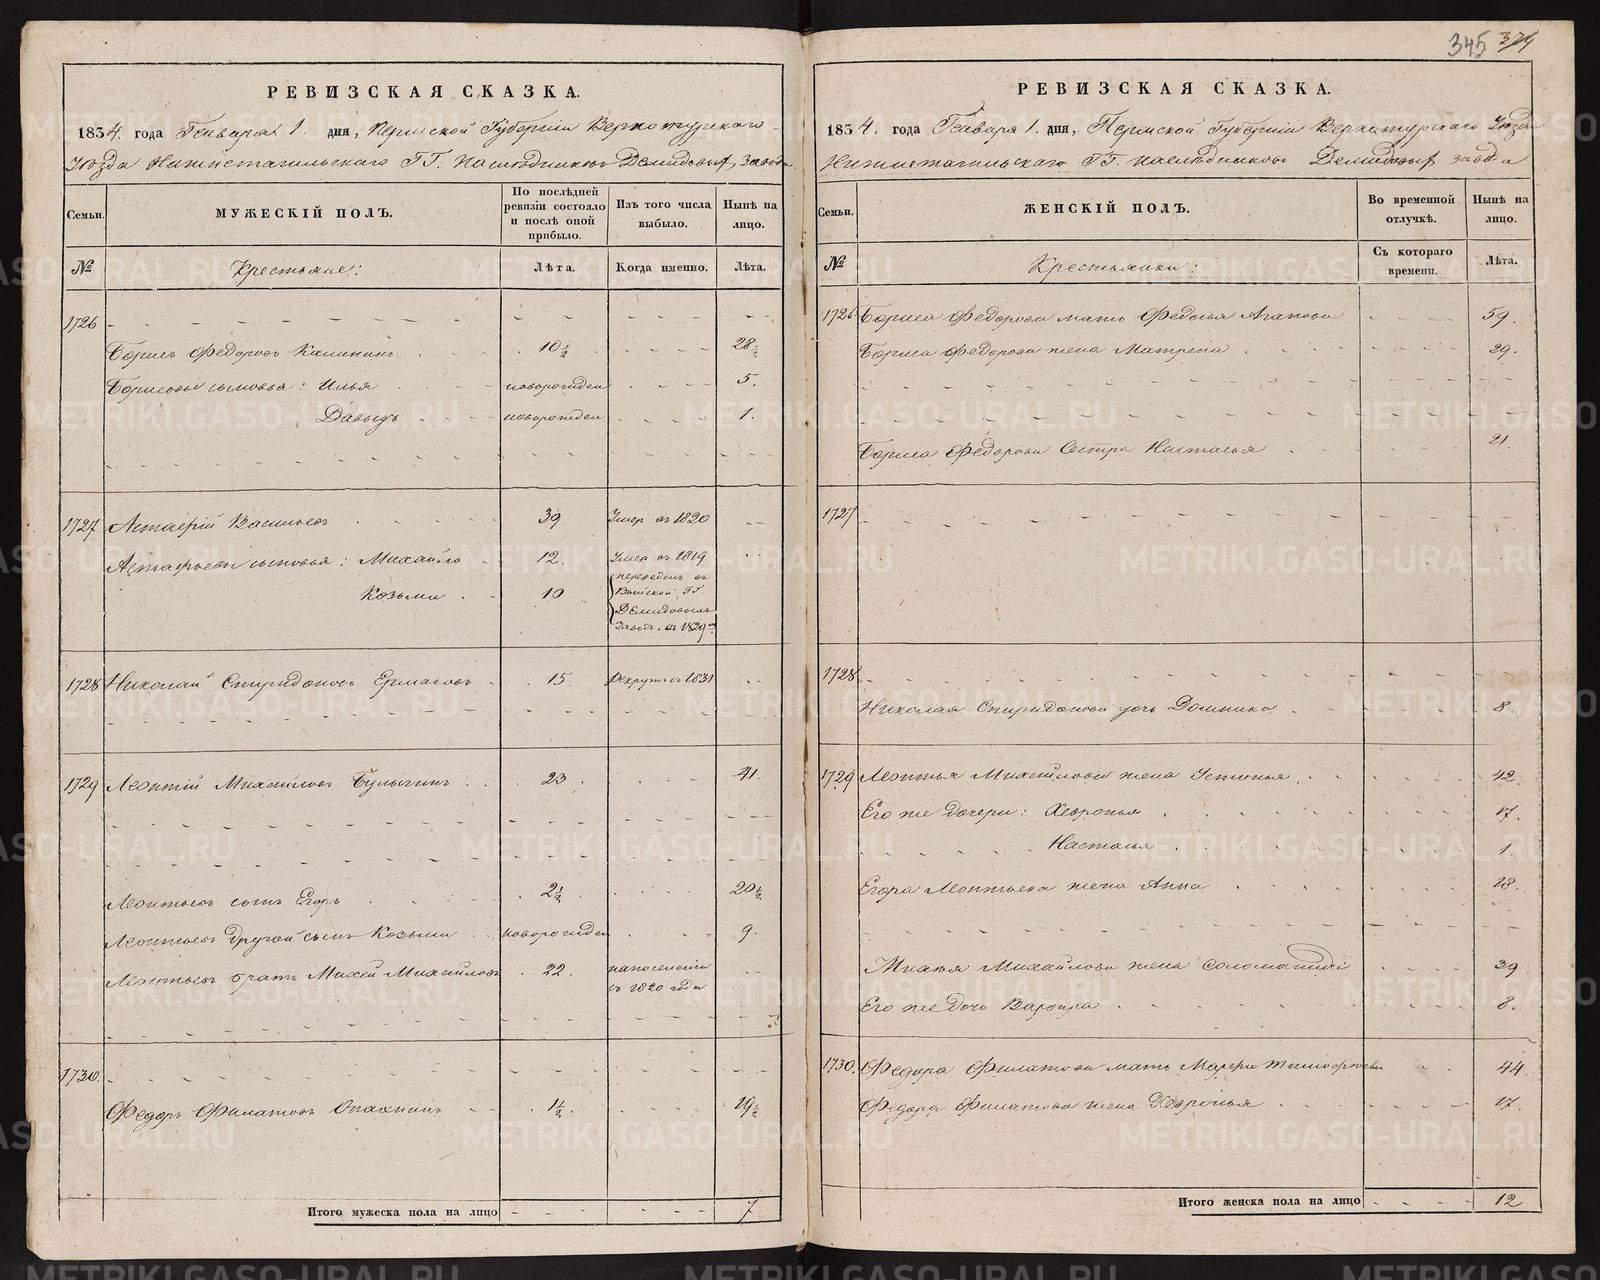 345 374
РЕВИЗСКАЯ СКАЗКА.
1834. года Генваря 1. дня, Пермской Губернiи Верхотурскаго
Уѣзда Нижнетагильскаго ГГ. Наслѣдниковъ Демидовыхъ завода
Семьи.
МУЖЕСКIЙ ПОЛЪ.
По послѣдней ревизiи состояло и послѣ оной прибыло.
Изъ того числа выбыло.
Нынѣ на лицо.
№ Крестьяне: Лѣта. Когда именно. Лѣта.
1726
Борисъ Федоровъ Калининъ 10½ 28½
Борисовы сыновья: Илья новорожден 5.
Давыдъ новорожден 1.
1727 Астафiй Васильевъ 39 Умер въ 1820
Астафьевы сыновья: Михайло 12. Умер въ 1819
Козьма 10 переведенъ въ
Выйской ГГ.
Демидовыхъ
Заводъ въ 1829
1728 Николай Спиридоновъ Ермаковъ 15. Рекрутъ въ 1831
1729 Леонтiй Михайловъ Булыгинъ 23. 41.
Леонтьевъ сынъ Егоръ 2½ 20½
Леонтьевъ другой сынъ Козьма новорожден 9.
Леонтьевъ братъ Михей Михайловъ 22. на поселенiи
съ 1820 года
1730.
Федоръ Филатовъ Опахнинъ 1½ 19½
Итого мужеска пола на лицо 7
РЕВИЗСКАЯ СКАЗКА.
1834. года Генваря 1. дня, Пермской Губернiи Верхотурскаго Уѣзда
Нижнетагильскаго ГГ. Наслѣдниковъ Демидовыхъ завода
Семьи.
ЖЕНСКIЙ ПОЛЪ.
Во временной отлучкѣ.
Нынѣ на лицо.
№ Крестьянки: Съ котораго времени. Лѣта.
1726 Бориса Федорова мать Федосья Агапова 59.
Бориса Федорова жена Матрена 29.
Бориса Федорова Сестра Настасья 21
1727
1728
Николая Спиридонова дочь Домника 8.
1729 Леонтья Михайлова жена Устинья 42.
Его же дочери: Хевронья 17.
Настасья 1.
Егора Леонтьева жена Анна 18.
Михея Михайлова жена Соломанида 39
Его же дочь Варвара 8.
1730. Федора Филатова мать Марфа Тимофеева 44.
Федора Филатова жена Хевронья 17.
Итого женска пола на лицо 12
METRIKI.GASO-URAL.RU